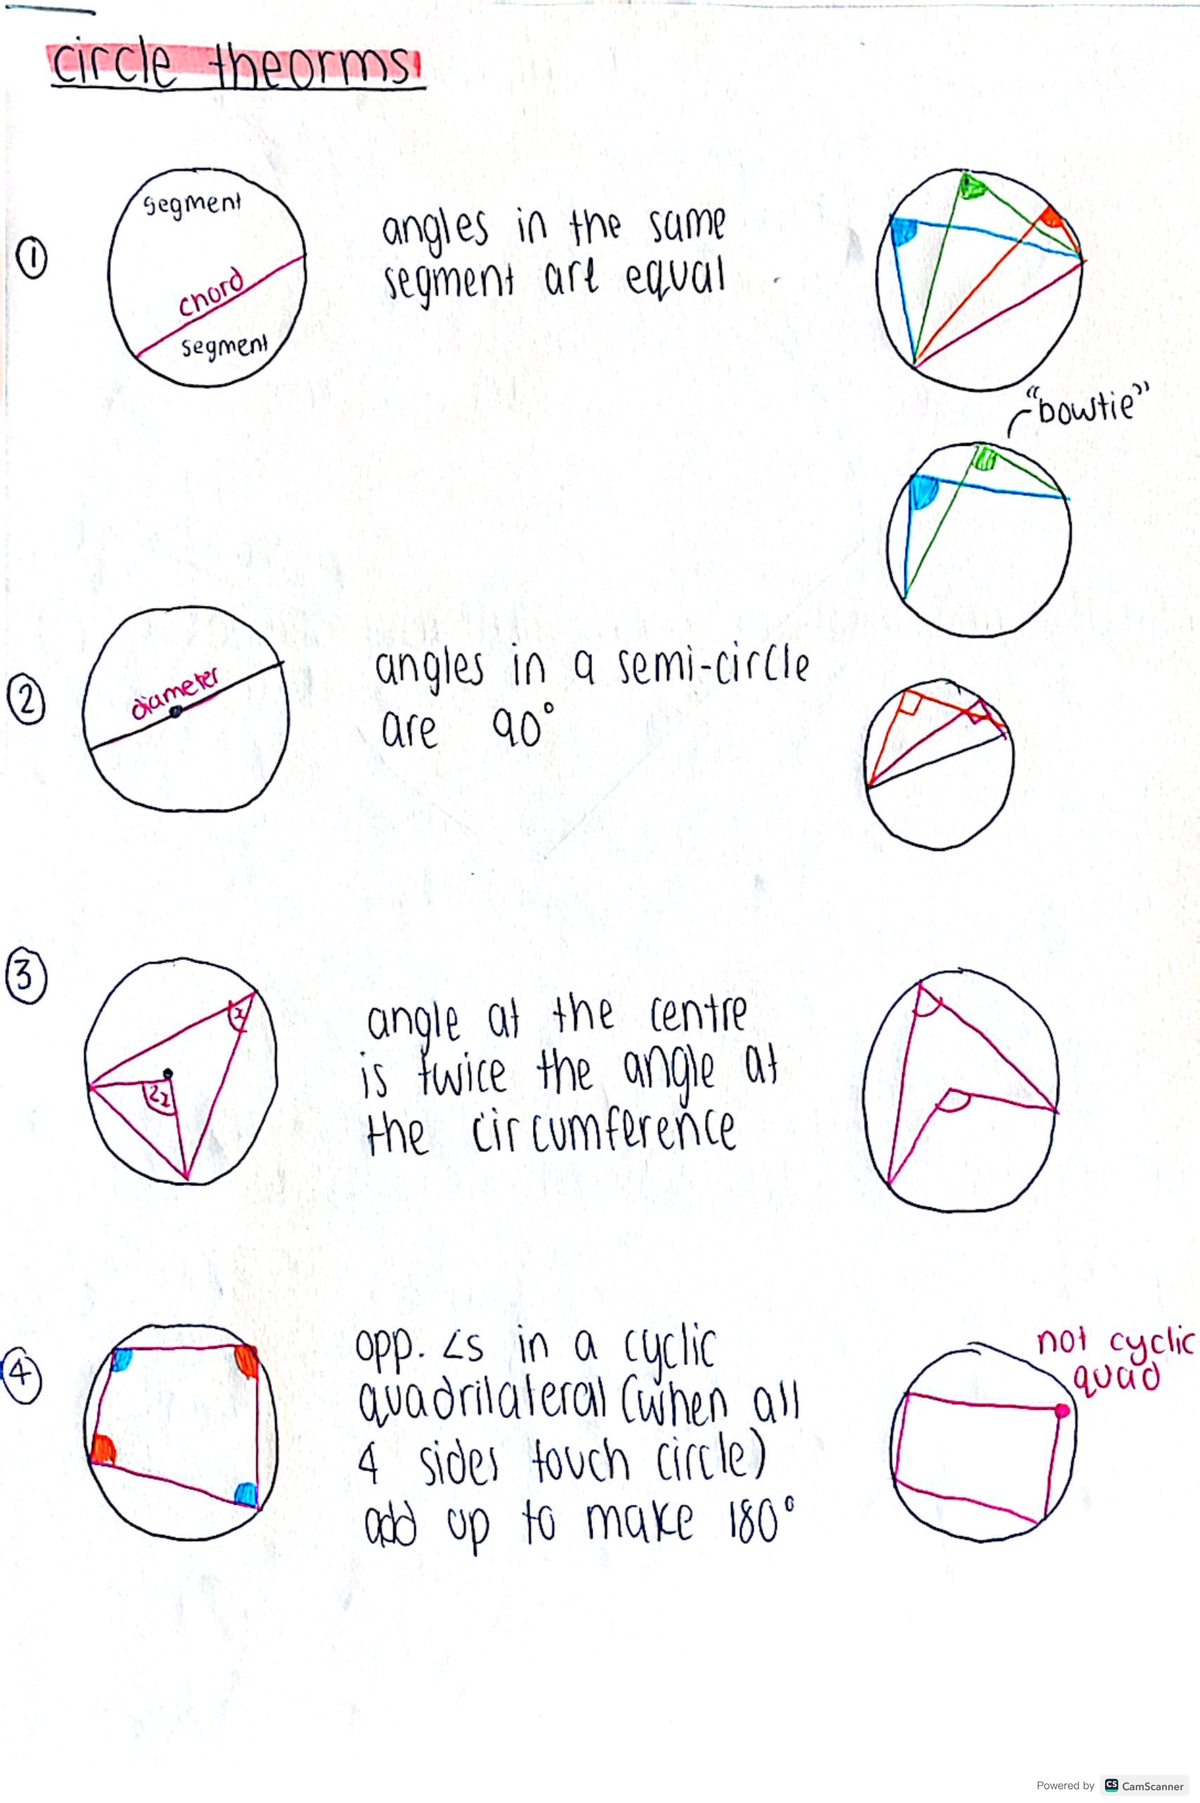 circle theorms
①
segment
chord
segment
angles in the same
segment are equal
"bowtie"
②
diameter
angles in a semi-circle
are 90°
③
x
2x
angle at the centre
is twice the angle at
the circumference
④
opp. ∠s in a cyclic
quadrilateral (when all
4 sides touch circle)
add up to make 180°
not cyclic
quad
Powered by CS CamScanner